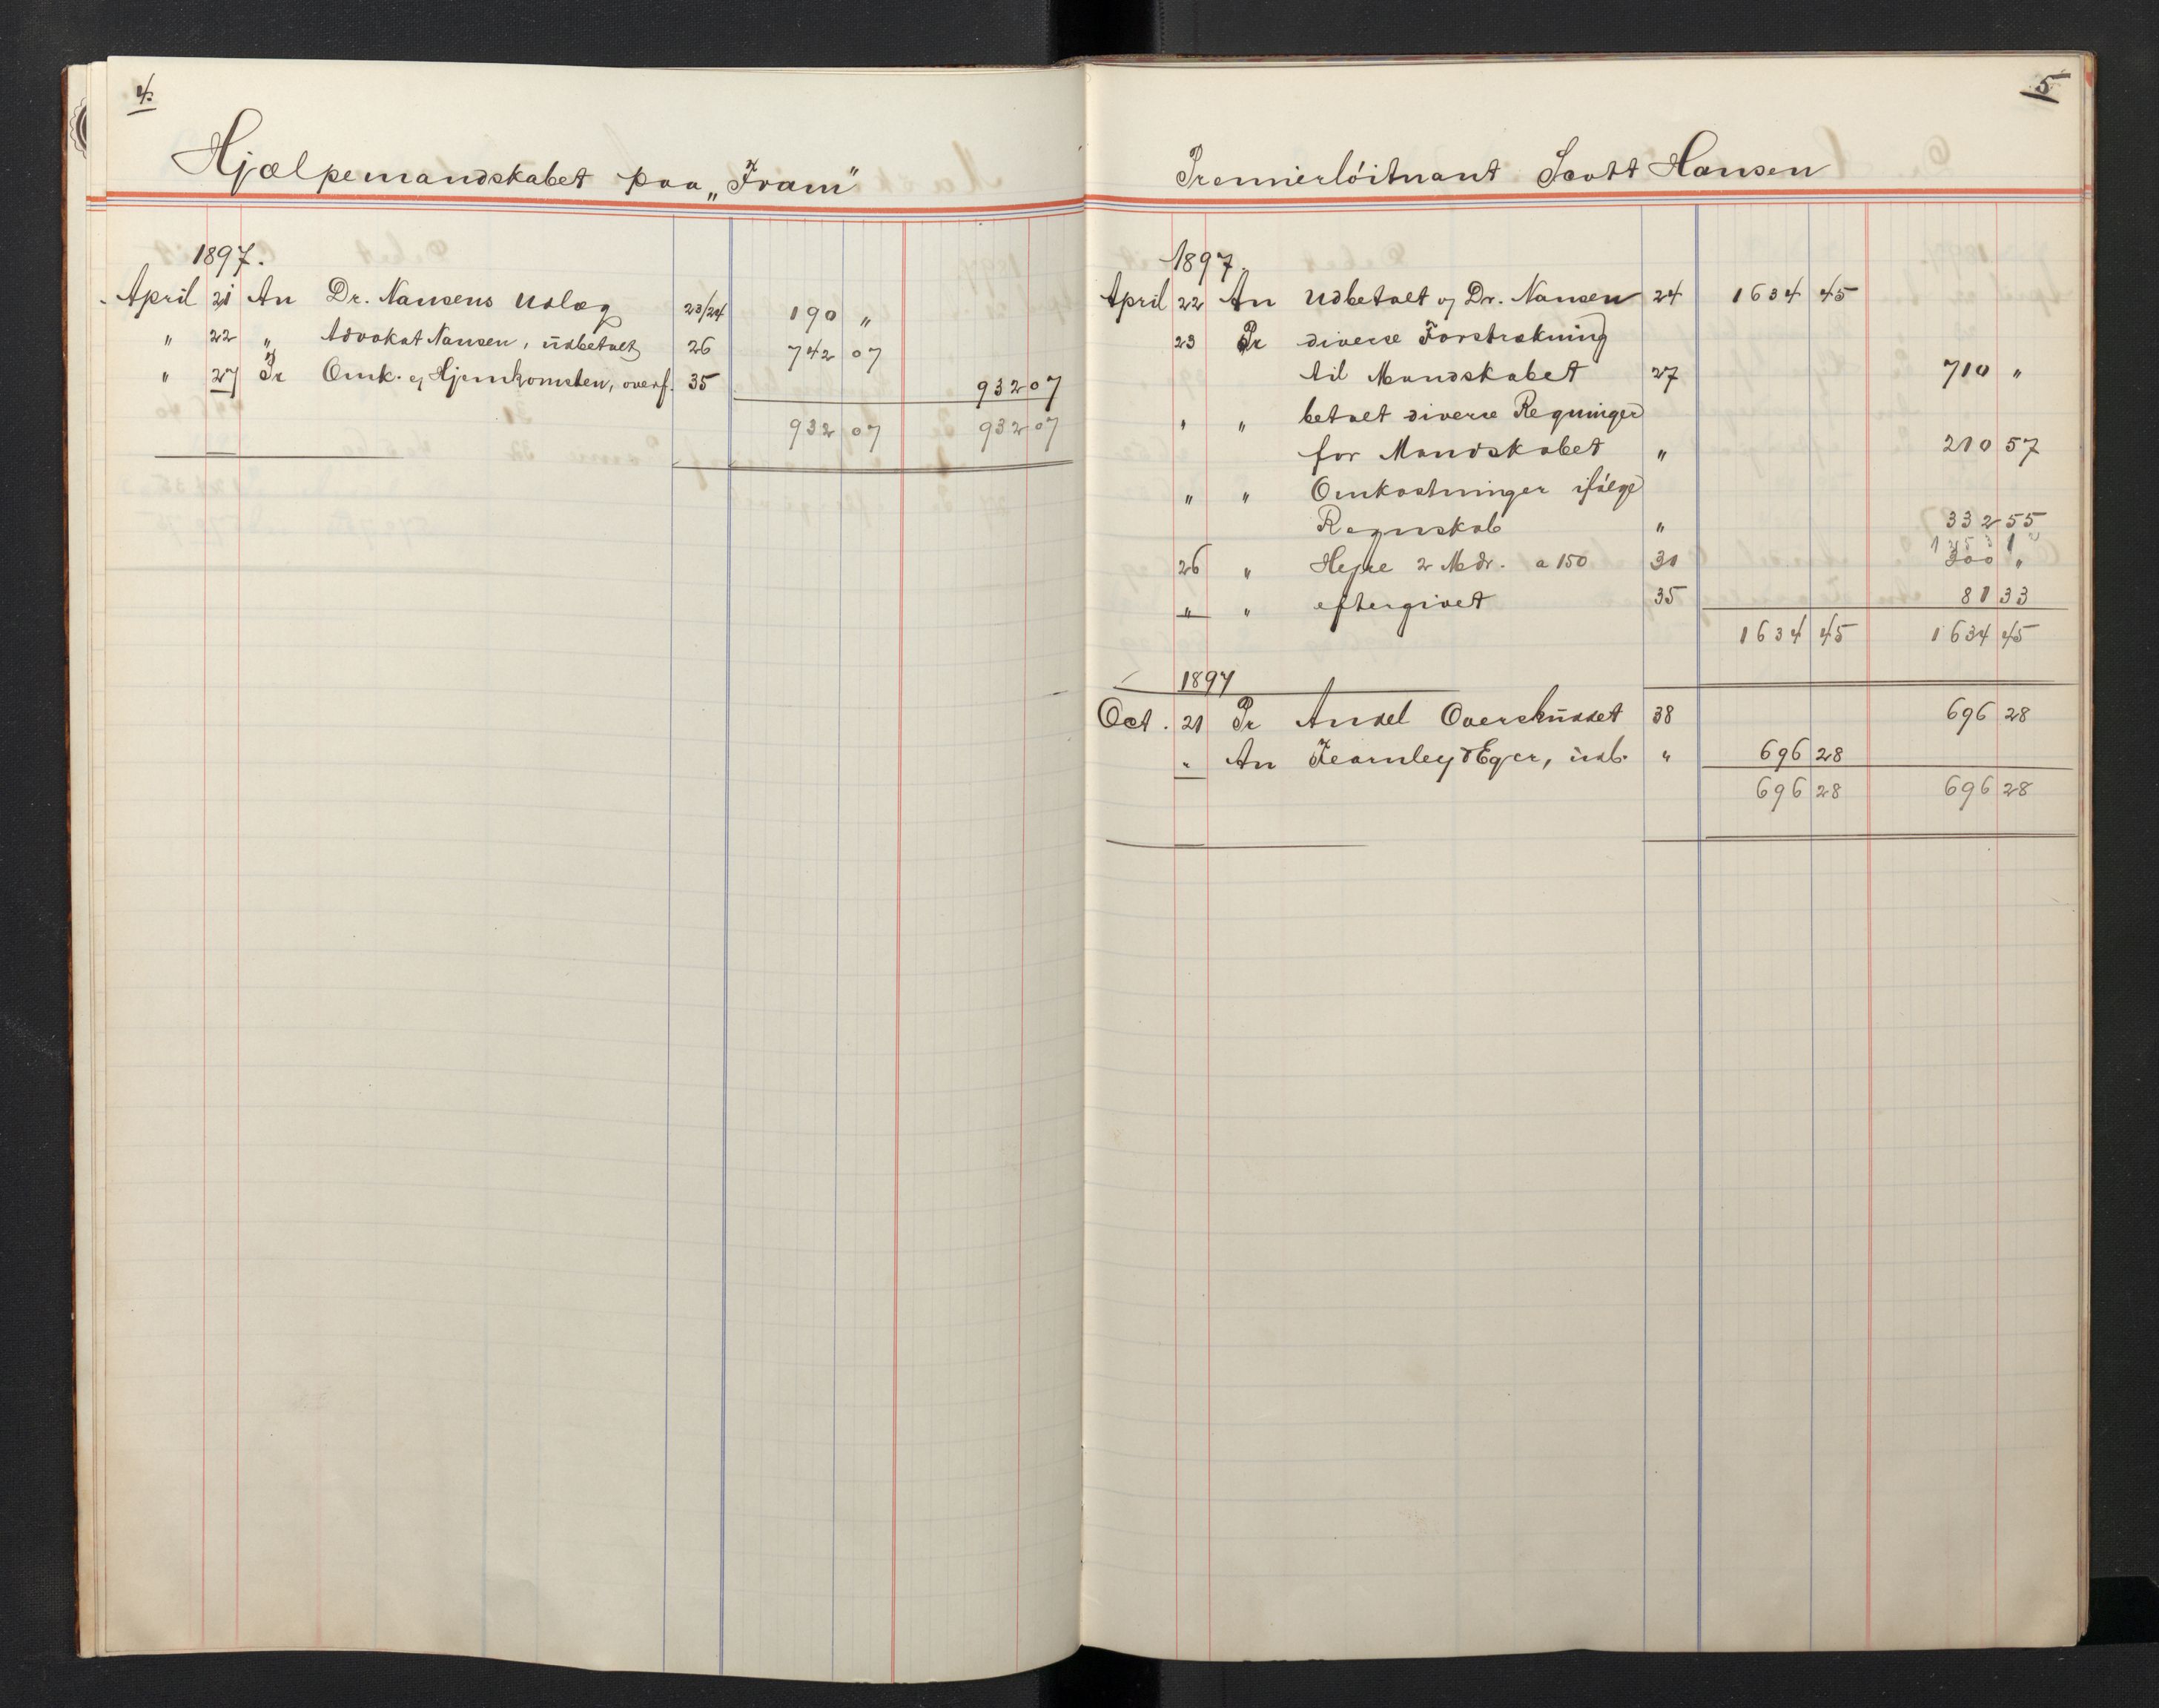 4.
Hjælpemandskabet paa „Fram"
1897.
April 21 An Dr. Nansens Udlæg 23/24 190 "
" 22 " Advokat Nansen, udbetalt 26 742 07
" 27 Pr Omk. v/ Hjemkomsten, overf. 35 932 07
932 07 932 07
5
Premierlöitnant Scott Hansen
1897.
April 22 An Udbetalt v/ Dr. Nansen 24 1634 45
23 Pr diverse Forstrækning
til Mandskabet 27 710 "
" " betalt diverse Regninger
for Mandskabet " 210 57
" " Omkostninger ifølge
Regnskab " 332 55
26 " Hyre 2 Mdr. a 150 30 300 "
" " eftergivet 35 81 33
1634 45 1634 45
1897
Oct. 21 Pr Andel Overskuddet 38 696 28
" An Fearnley & Eger, udb. " 696 28
696 28 696 28